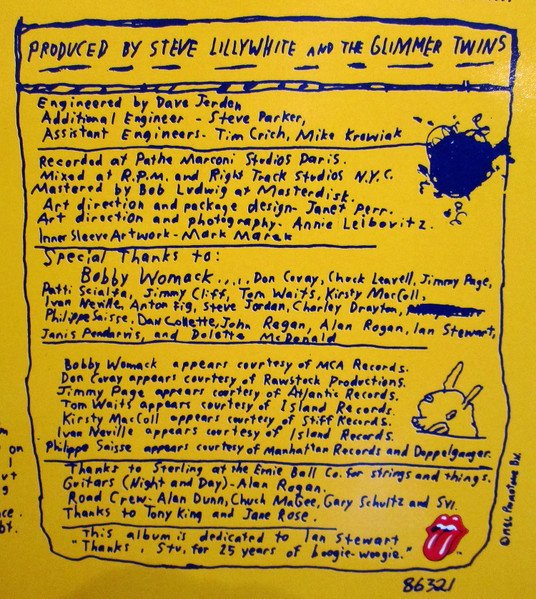 PRODUCED BY STEVE LILLYWHITE AND THE GLIMMER TWINS
Engineered by Dave Jerden
Additional Engineer - Steve Parker,
Assistant Engineers - Tim Crich, Mike Krowiak
Recorded at Pathe Marconi Studios Paris.
Mixed at R.P.M. and Right Track Studios N.Y.C.
Mastered by Bob Ludwig at Masterdisk.
Art direction and package design - Janet Perr.
Art direction and photography - Annie Leibovitz.
Inner Sleeve Artwork - Mark Marek
Special Thanks to:
Bobby Womack...., Don Covay, Chuck Leavell, Jimmy Page,
Patti Scialfa, Jimmy Cliff, Tom Waits, Kirsty MacColl,
Ivan Neville, Anton Fig, Steve Jordan, Charley Drayton,
Philippe Saisse, Dan Collette, John Regan, Alan Rogan, Ian Stewart,
Janis Pendarvis, and Dolette McDonald
Bobby Womack appears courtesy of MCA Records.
Don Covay appears courtesy of Rawstock Productions.
Jimmy Page appears courtesy of Atlantic Records.
Tom Waits appears courtesy of Island Records.
Kirsty MacColl appears courtesy of Stiff Records.
Ivan Neville appears courtesy of Island Records.
Philippe Saisse appears courtesy of Manhattan Records and Doppelganger.
Thanks to Sterling at the Ernie Ball Co. for strings and things.
Guitars (Night and Day) - Alan Rogan.
Road Crew - Alan Dunn, Chuck MaGee, Gary Schultz and Svi.
Thanks to Tony King and Jane Rose.
This album is dedicated to Ian Stewart
"Thanks, Stu. for 25 years of boogie-woogie."
86321